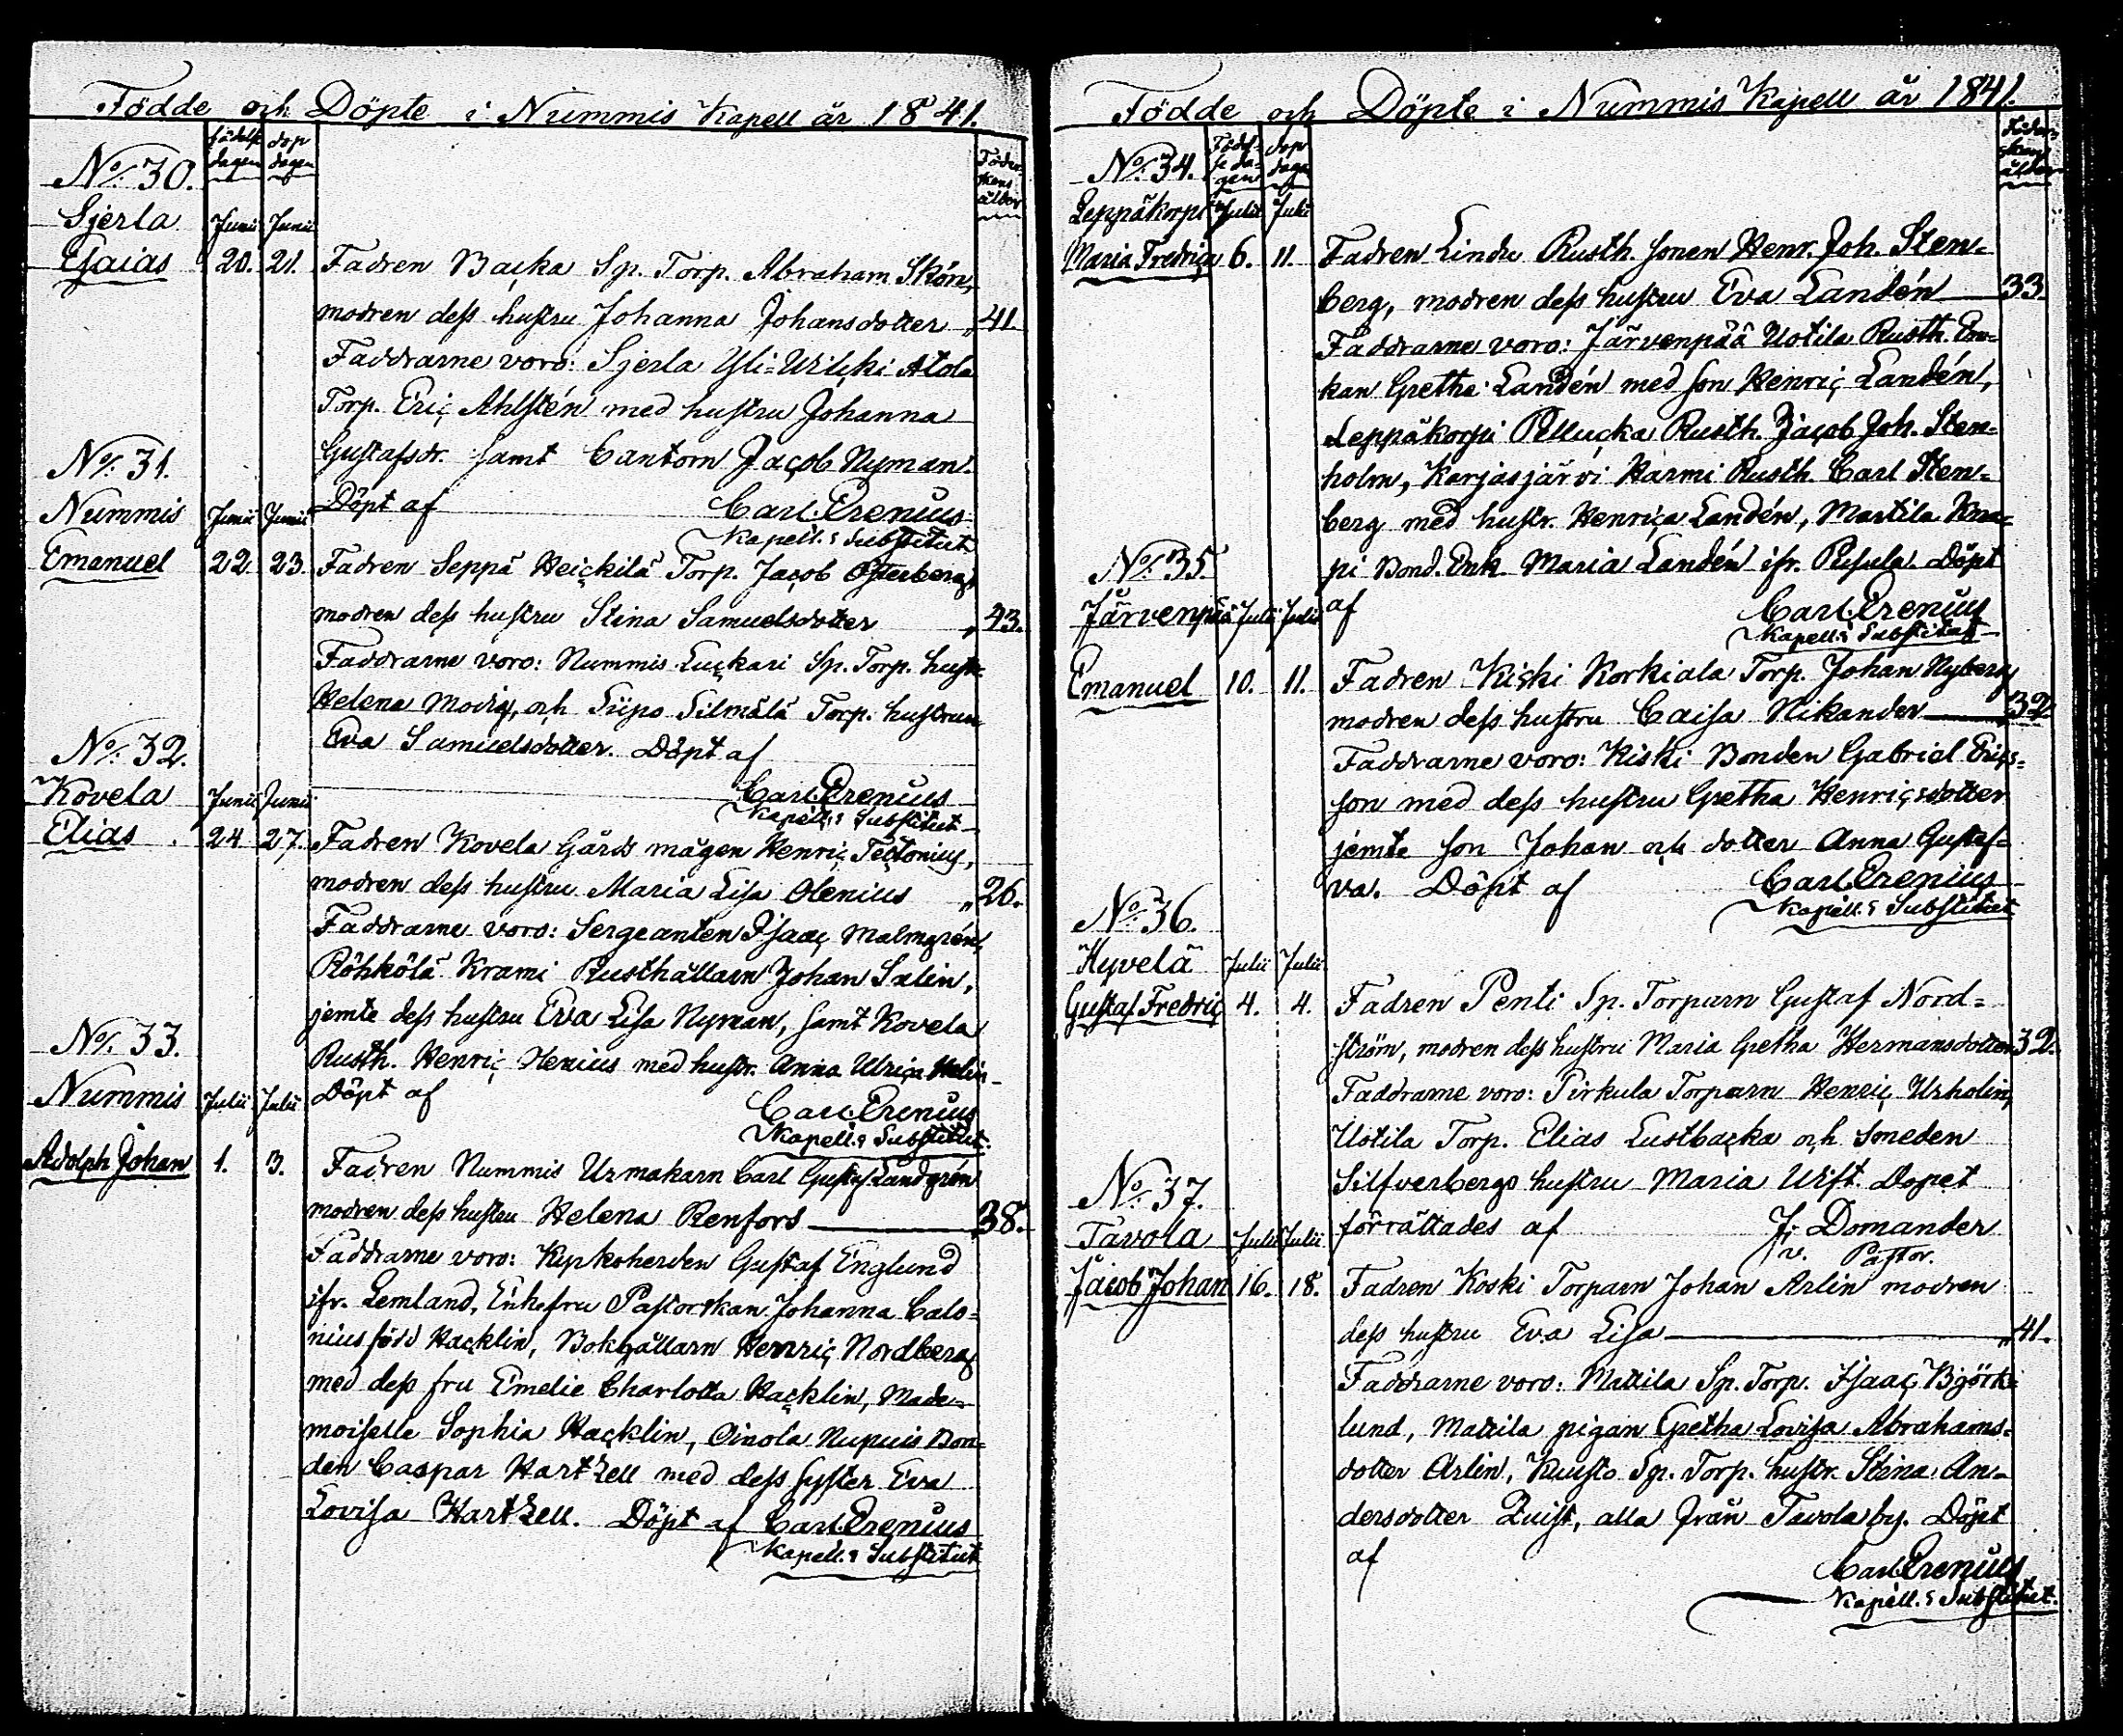 Födde och Döpte i Nummis Kapell år 1841.
födelse dagen
dop dagen
Föderskans ålder
No. 30.
Sjerla Junii Junii
Esaias 20. 21. Fadren Backa Sp. Torp. Abraham Skön,
modren dess hustru Johanna Johansdotter „ 41.
Faddrarne voro: Sjerla Yli-Wilcki Atola
Torp. Eric Ahlstén med hustru Johanna
Gustafsdr. samt Cantorn Jacob Nyman.
Döpt af Carl Erenius
Kapell:s Substitut
No. 31.
Nummis Junii Junii
Emanuel 22. 23. Fadren Seppä Heickilä Torp. Jacob Österberg,
modren dess hustru Stina Samuelsdotter „ 43.
Faddrarne voro: Nummis Luckari Sp. Torp. hustr.
Helena Modig, och Siipo Silmälä Torp. hustrun
Eva Samuelsdotter. Döpt af
Carl Erenius
Kapell:s Substitut
No. 32.
Kovela Junii Junii
Elias 24 27. Fadren Kovela Gårds mågen Henric Tectonius,
modren dess hustru Maria Lisa Olenius „ 26.
Faddrarne voro: Sergeanten Isaac Malmgrén,
Röhkölä Krami Rusthållarn Johan Salin,
jemte dess hustru Eva Lisa Nyman, samt Kovela
Rusth. Henric Henius med hustr. Anna Ulrica Helin
Döpt af Carl Erenius
Kapell:s Substitut.
No. 33.
Nummis Julii Julii
Adolph Johan 1. 3. Fadren Nummis Urmakarn Carl Gustaf Landgrén
modren dess hustru Helena Renfors 38.
Faddrarne voro: Kyrkoherden Gustaf Englund
ifr. Lemland, Enkefru Pastorskan Johanna Calo-
nius född Hacklin, Bokhållarn Henric Nordberg
med dess fru Emelie Charlotta Hacklin, Made-
moiselle Sophia Hacklin, Oinola Nupuis Bon-
den Caspar Hartzell med dess syster Eva
Lovisa Hartzell. Döpt af Carl Erenius
Kapell:s Substitut
Födde och Döpte i Nummis Kapell år 1841.
Födelsedagen
dop dagen
Föderskans ålder
No. 34.
Leppäkorpi Julii Julii
Maria Fredrica 6. 11. Fadren Lindu Rusth. sonen Henr. Joh. Sten-
berg, modren dess hustru Eva Landén 33.
Faddrarne voro: Järvenpää Uotila Rusth. En-
kan Gretha Landén med son Henric Landén,
Leppäkorpi Rusth. Jacob Joh. Sten-
holm, Karjasjärvi Harmi Rusth. Carl Sten-
berg med hustr. Henrica Landén, Martila Knaa-
pi Bond. Enk. Maria Landén ifr. Pusula. Döpt
af Carl Erenius
Kapell:s Substitut
No. 35.
Järvenpää Julii Julii
Emanuel 10. 11. Fadren Kiski Korkiala Torp. Johan Nyberg
modren dess hustru Caisa Nikander 32.
Faddrarne voro: Kiski Bonden Gabriel Erics-
son med dess hustru Gretha Henricsdotter
jemte son Johan och dotter Anna Gustaf-
va. Döpt af Carl Erenius
Kapell:s Substitut
No. 36.
Hyvelä Julii Julii
Gustaf Fredric 4. 4. Fadren Penti Sp. Torparn Gustaf Nord-
ström, modren dess hustru Maria Gretha Hermansdotter 32.
Faddrarne voro: Pirkula Torparn Henric Urholin,
Uotila Torp. Elias Lustbacka och smeden
Silfverbergs hustru Maria Wist. Dopet
förrättades af J. Domander
v. Pastor.
No. 37.
Tavola Julii Julii
Jacob Johan 16. 18. Fadren Koski Torparn Johan Arlin modren
dess hustru Eva Lisa „ 41.
Faddrarne voro: Mattila Sp. Torp. Isaac Björk-
lund, Mattila pigan Gretha Lovisa Abrahams-
dotter Arlin, Kuusto Sp. Torp. hustr. Stina An-
dersdotter Quist, alla från Tavola by. Döpt
af Carl Erenius
Kapell:s Substitut.